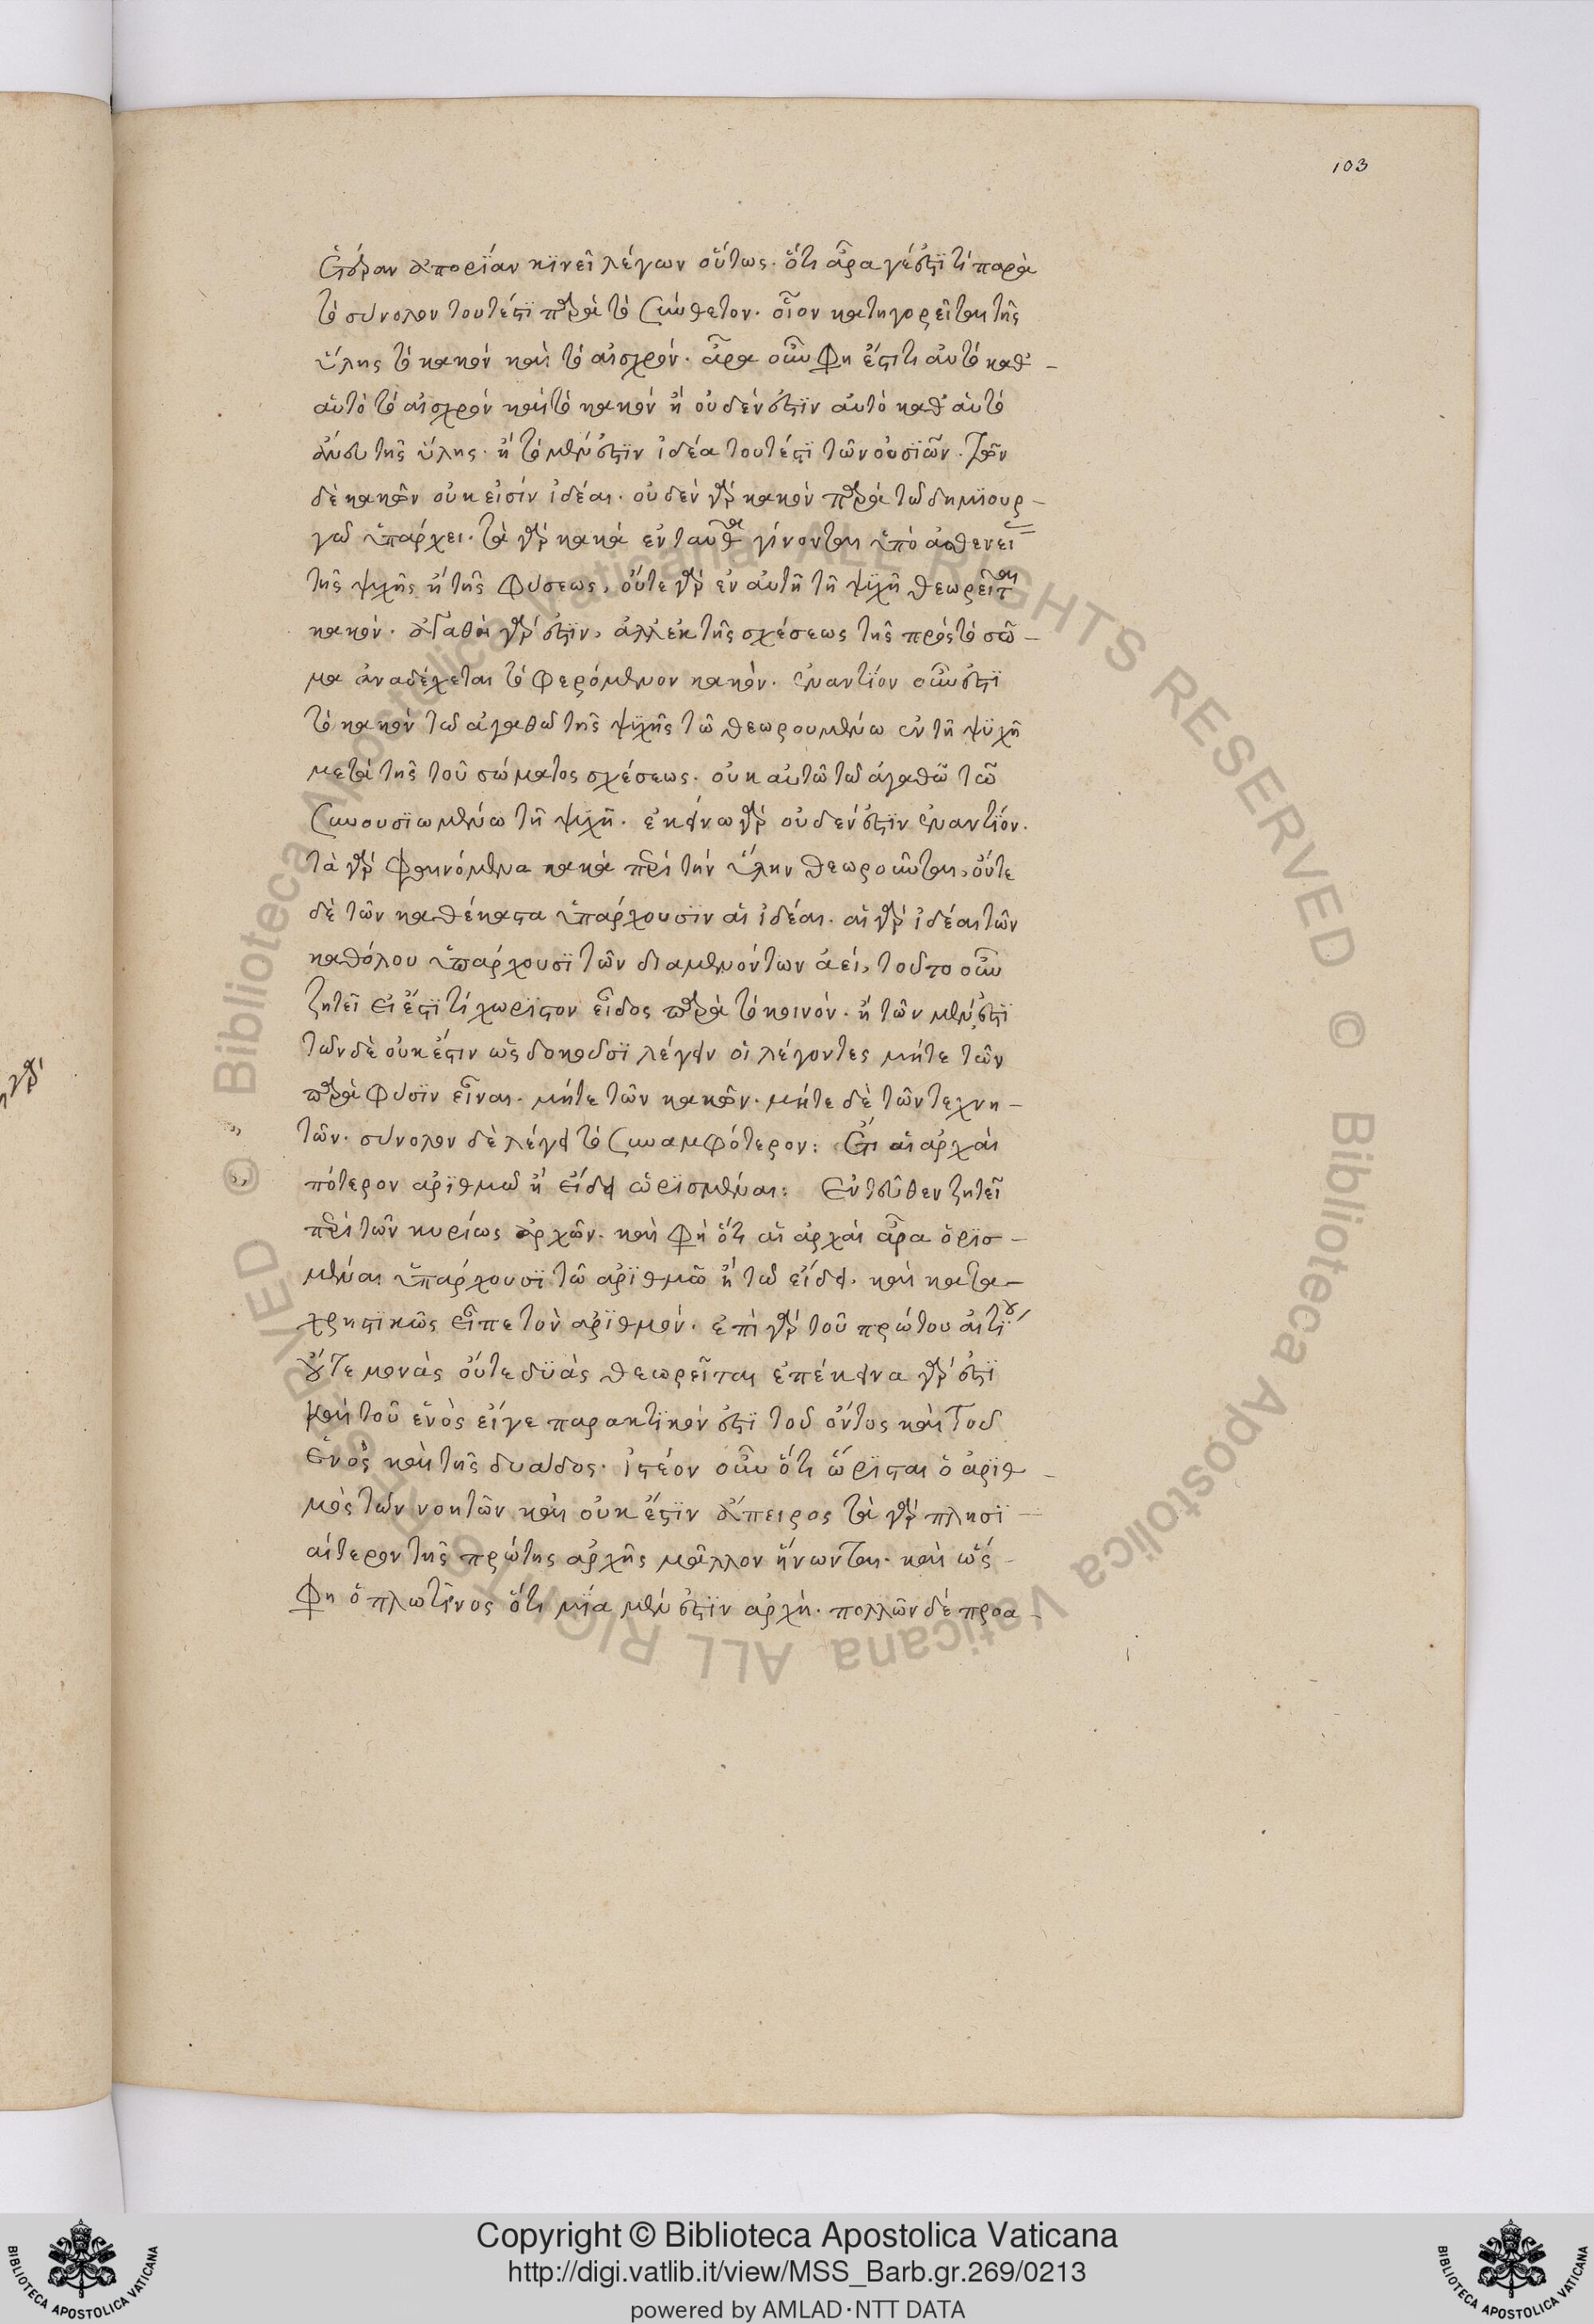 103
ἑτέραν ἀπορίαν κϊνεῖ λέγων οὕτως. ὅτι ἆρα γέ ἐστϊ τὶ παρὰ
τὸ σύνολον τουτέστϊ παρὰ τὸ σύνθετον. οἷον κατηγορεῖται τῆς
ὕλης τὸ κακὸν καὶ τὸ αἰσχρόν. ἆρα οὖν φη ἔστι τι αὐτὸ καθ᾽
αὑτὸ τὸ αἰσχρὸν καὶ τὸ κακὸν ἢ οὐδέν ἐστϊν αὐτὸ καθ᾽ αὑτὸ
ἄνευ τῆς ὕλης. ἢ τὸ μέν ἐστϊν ἰδέα τουτέστϊ τῶν οὐσϊῶν. τῶν
δὲ κακῶν οὐκ εἰσὶν ἰδέαι. οὐδὲν γὰρ κακὸν παρὰ τῶ δημϊουρ-
γῶ ὑπάρχει. τὰ γὰρ κακὰ ἐνταῦθα γίνονται ὑπὸ ἀσθενείας
τῆς ψυχῆς ἢ τῆς φύσεως, οὔτε γὰρ ἐν αὐτῆ τῆ ψϋχῆ θεωρεῖται
κακόν. ἀγαθὴ γάρ ἐστϊν, ἀλλ᾽ ἐκ τῆς σχέσεως τῆς πρὸς τὸ σῶ-
μα ἀναδέχεται τὸ φερόμενον κακόν. ἐναντίον οὖν ἐστϊ
τὸ κακὸν τῶ ἀγαθῶ τῆς ψϋχῆς τῶ θεωρουμένω ἐν τῆ ψϋχῆ
μετὰ τῆς τοῦ σώματος σχέσεως. οὐκ αὐτῶ τῶ ἀγαθῶ τῶ
συνουσϊωμένω τῆ ψϋχῆ. ἐκείνω γὰρ οὐδέν ἐστϊν ἐναντίον.
τὰ γὰρ φαινόμενα κακὰ περὶ τὴν ὕλην θεωροῦνται, οὔτε
δὲ τῶν καθέκαστα ὑπάρχουσϊν αἱ ἰδέαι. αἱ γὰρ ἰδέαι τῶν
καθόλου ὑπάρχουσϊ τῶν διαμενόντων ἀεί, τοῦτο οὖν
ζητεῖ εἰ ἔστϊ τὶ χωρϊστον εἶδος παρὰ τὸ κοινόν. ἢ τῶν μέν ἐστϊ
τῶν δὲ οὐκ ἔστιν ὡς δοκοῦσϊ λέγειν οἱ λέγοντες μήτε τῶν
παρὰ φύσϊν εἶναι. μήτε τῶν κακῶν. μήτε δὲ τῶν τεχνη-
τῶν. σύνολον δὲ λέγει τὸ συναμφότερον: Ἔτι αἱ ἀρχαὶ
πότερον ἀρϊθμῶ ἢ εἴδει ὡρϊσμέναι: Ἐντεῦθεν ζητεῖ
περὶ τῶν κυρίως ἀρχῶν. καὶ φὴ ὅτι αἱ ἀρχαὶ ἆρα ὁρϊσ-
μέναι ὑπάρχουσϊ τῶ ἀρϊθμῶ ἢ τῶ εἴδει. καὶ κατα-
χρηστϊκῶς εἶπε τὸν ἀρϊθμόν. ἐπὶ γὰρ τοῦ πρώτου αἰτίου
οὔτε μονὰς οὔτε δϋὰς θεωρεῖται ἐπέκεινα γάρ ἐστϊ
καὶ τοῦ ἑνὸς εἴγε παρακτϊκόν ἐστϊ τοῦ ὄντος καὶ τοῦ
ἑνὸς καὶ τῆς δυάδος. ἰστέον οὖν ὅτι ὥρϊσται ὁ ἀρϊθ-
μὸς τῶν νοητῶν καὶ οὐκ ἔστϊν ἄπειρος τὰ γὰρ πλησϊ-
αίτερον τῆς πρώτης ἀρχῆς μᾶλλον ἥνωνται. καὶ ὥς
φη ὁ πλωτῖνος ὅτι μϊα μέν ἐστϊν ἀρχὴ. πολλῶν δὲ προα-
Copyright © Biblioteca Apostolica Vaticana
http://digi.vatlib.it/view/MSS_Barb.gr.269/0213
powered by AMLAD·NTT DATA
BIBLIOTECA APOSTOLICA VATICANA
BIBLIOTECA APOSTOLICA VATICANA
© Biblioteca Apostolica Vaticana ALL RIGHTS RESERVED © Biblioteca Apostolica Vaticana ALL RIGHTS RESERVED